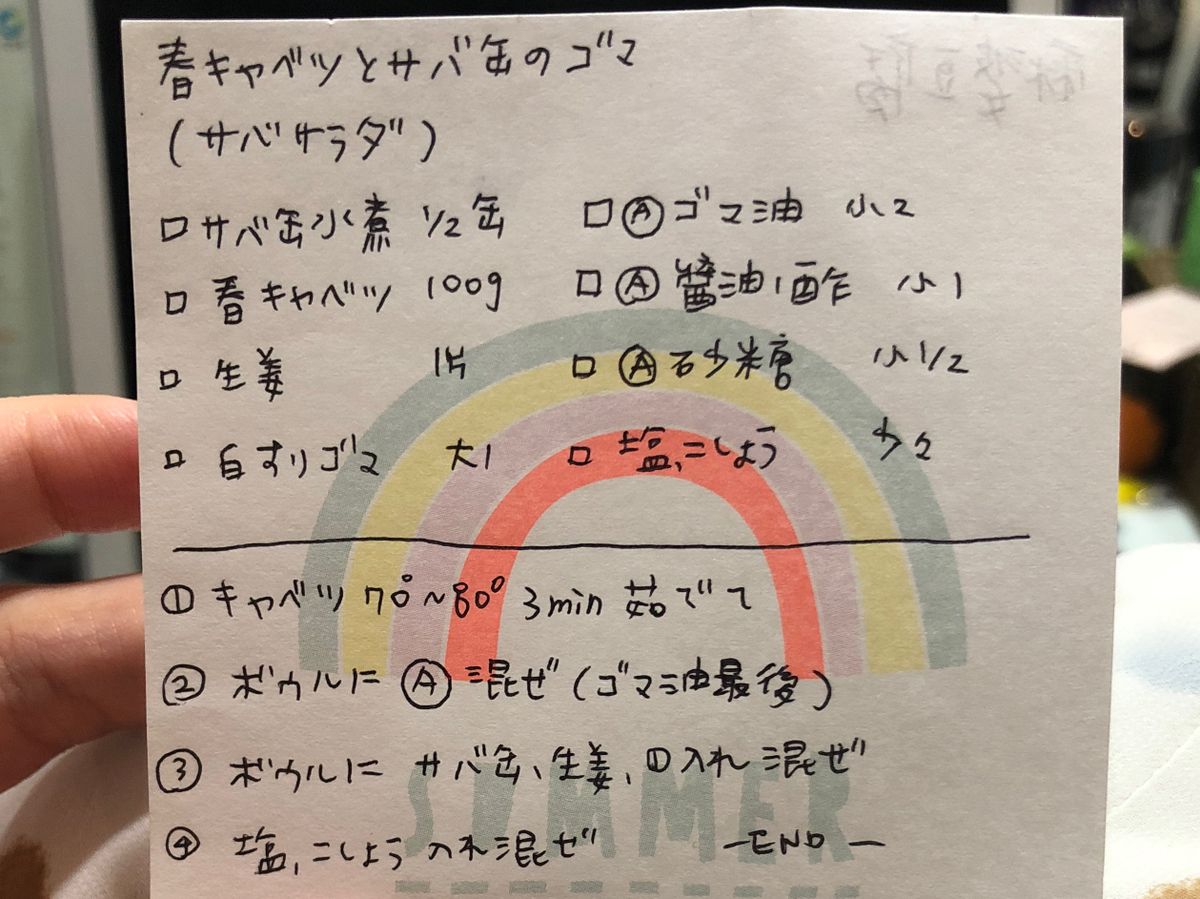 春キャベツとサバ缶のゴマ
(サバサラダ)
□サバ缶水煮 1/2缶 □Ⓐゴマ油 小2
□春キャベツ 100g □Ⓐ醬油、酢 小1
□生姜 1片 □Ⓐ砂糖 小1/2
□白すりゴマ 大1 □塩、こしょう 少々
①キャベツ 70°~80° 3min 茹でて
②ボウルに Ⓐ 混ぜ(ゴマ油最後)
③ボウルに サバ缶、生姜、①入れ混ぜ
④塩、こしょう入れ混ぜ —END—
SUMMER